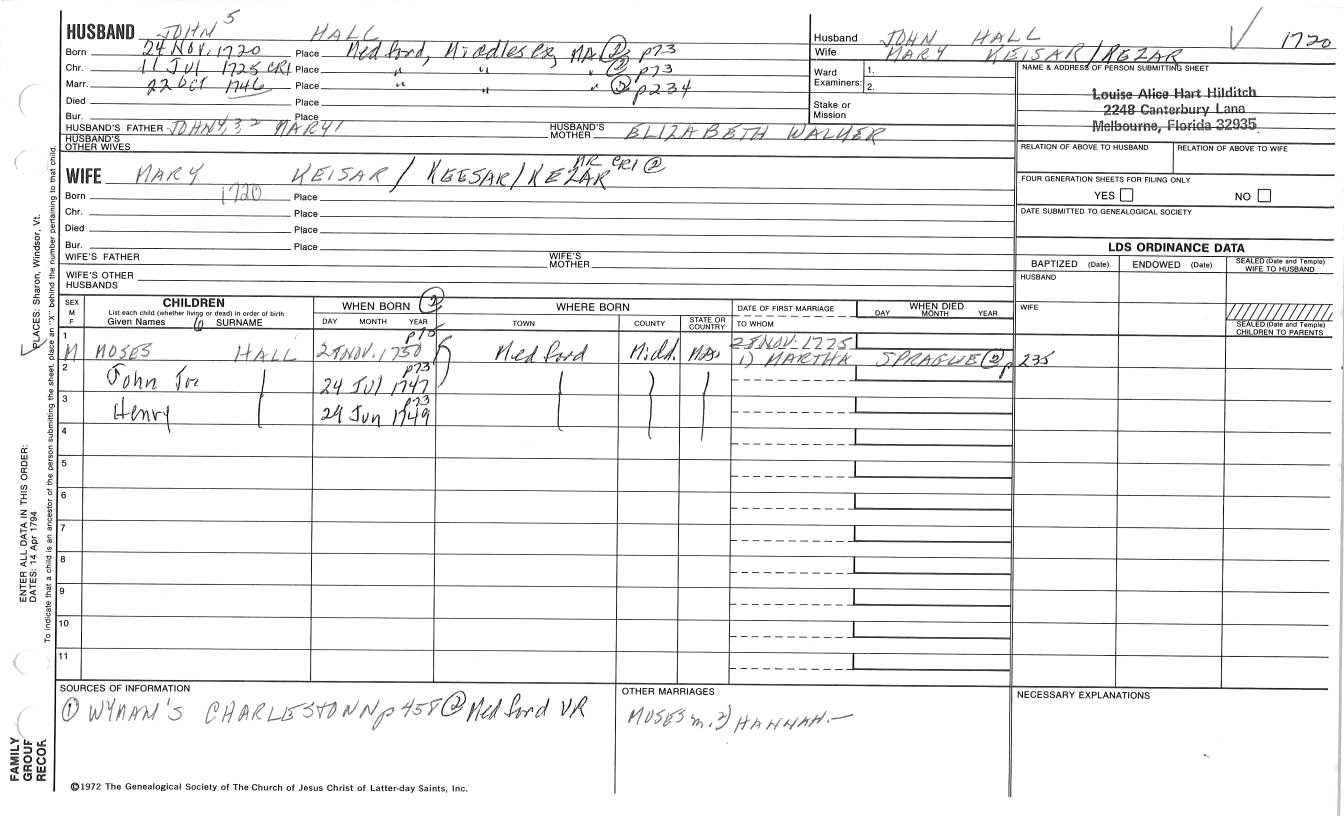 HUSBAND JOHN 5 HALL
Born 24 NOV. 1720 Place Medford, Middlesex, MA ② p73
Chr. 11 JUL 1725 CR1 Place " " " ② p73
Marr. 22 OCT 1746 Place " " " ② p234
Died Place
Bur. Place
HUSBAND'S FATHER JOHN 4, 3 2 MARY 1 HUSBAND'S MOTHER ELIZABETH WALKER
HUSBAND'S OTHER WIVES
Husband JOHN HALL √ 1720
Wife MARY KEISAR/KEZAR
Ward Examiners: 1.
2.
Stake or Mission
NAME & ADDRESS OF PERSON SUBMITTING SHEET
Louise Alice Hart Hilditch
2248 Canterbury Lana
Melbourne, Florida 32935
RELATION OF ABOVE TO HUSBAND RELATION OF ABOVE TO WIFE
FOUR GENERATION SHEETS FOR FILING ONLY
YES NO
DATE SUBMITTED TO GENEALOGICAL SOCIETY
WIFE MARY KEISAR / KEESAR/KEZAR CR1 ②
Born 1720 Place
Chr. Place
Died Place
Bur. Place
WIFE'S FATHER WIFE'S MOTHER
WIFE'S OTHER HUSBANDS
LDS ORDINANCE DATA
BAPTIZED (Date) ENDOWED (Date) SEALED (Date and Temple) WIFE TO HUSBAND
HUSBAND
WIFE
SEALED (Date and Temple) CHILDREN TO PARENTS
SEX M F
CHILDREN
List each child (whether living or dead) in order of birth
Given Names 6 SURNAME
WHEN BORN ②
DAY MONTH YEAR
WHERE BORN
TOWN COUNTY STATE OR COUNTRY
DATE OF FIRST MARRIAGE
TO WHOM
WHEN DIED
DAY MONTH YEAR
1 M MOSES HALL 25 NOV. 1750 p75 Medford Midd. MA 25 NOV. 1775
1) MARTHA SPRAGUE ② p 235
2 John 24 JUL 1747 p73
3 Henry 29 Jun 1749 p73
4
5
6
7
8
9
10
11
SOURCES OF INFORMATION
① WYMAN'S CHARLESTOWN p 458 ② Medford VR
OTHER MARRIAGES
MOSES m. 2) HANNAH —
NECESSARY EXPLANATIONS
©1972 The Genealogical Society of The Church of Jesus Christ of Latter-day Saints, Inc.
FAMILY GROUP RECOR
ENTER ALL DATA IN THIS ORDER:
DATES: 14 Apr 1794
PLACES: Sharon, Windsor, Vt.
To indicate that a child is an ancestor of the person submitting the sheet, place an "X" behind the number pertaining to that child.